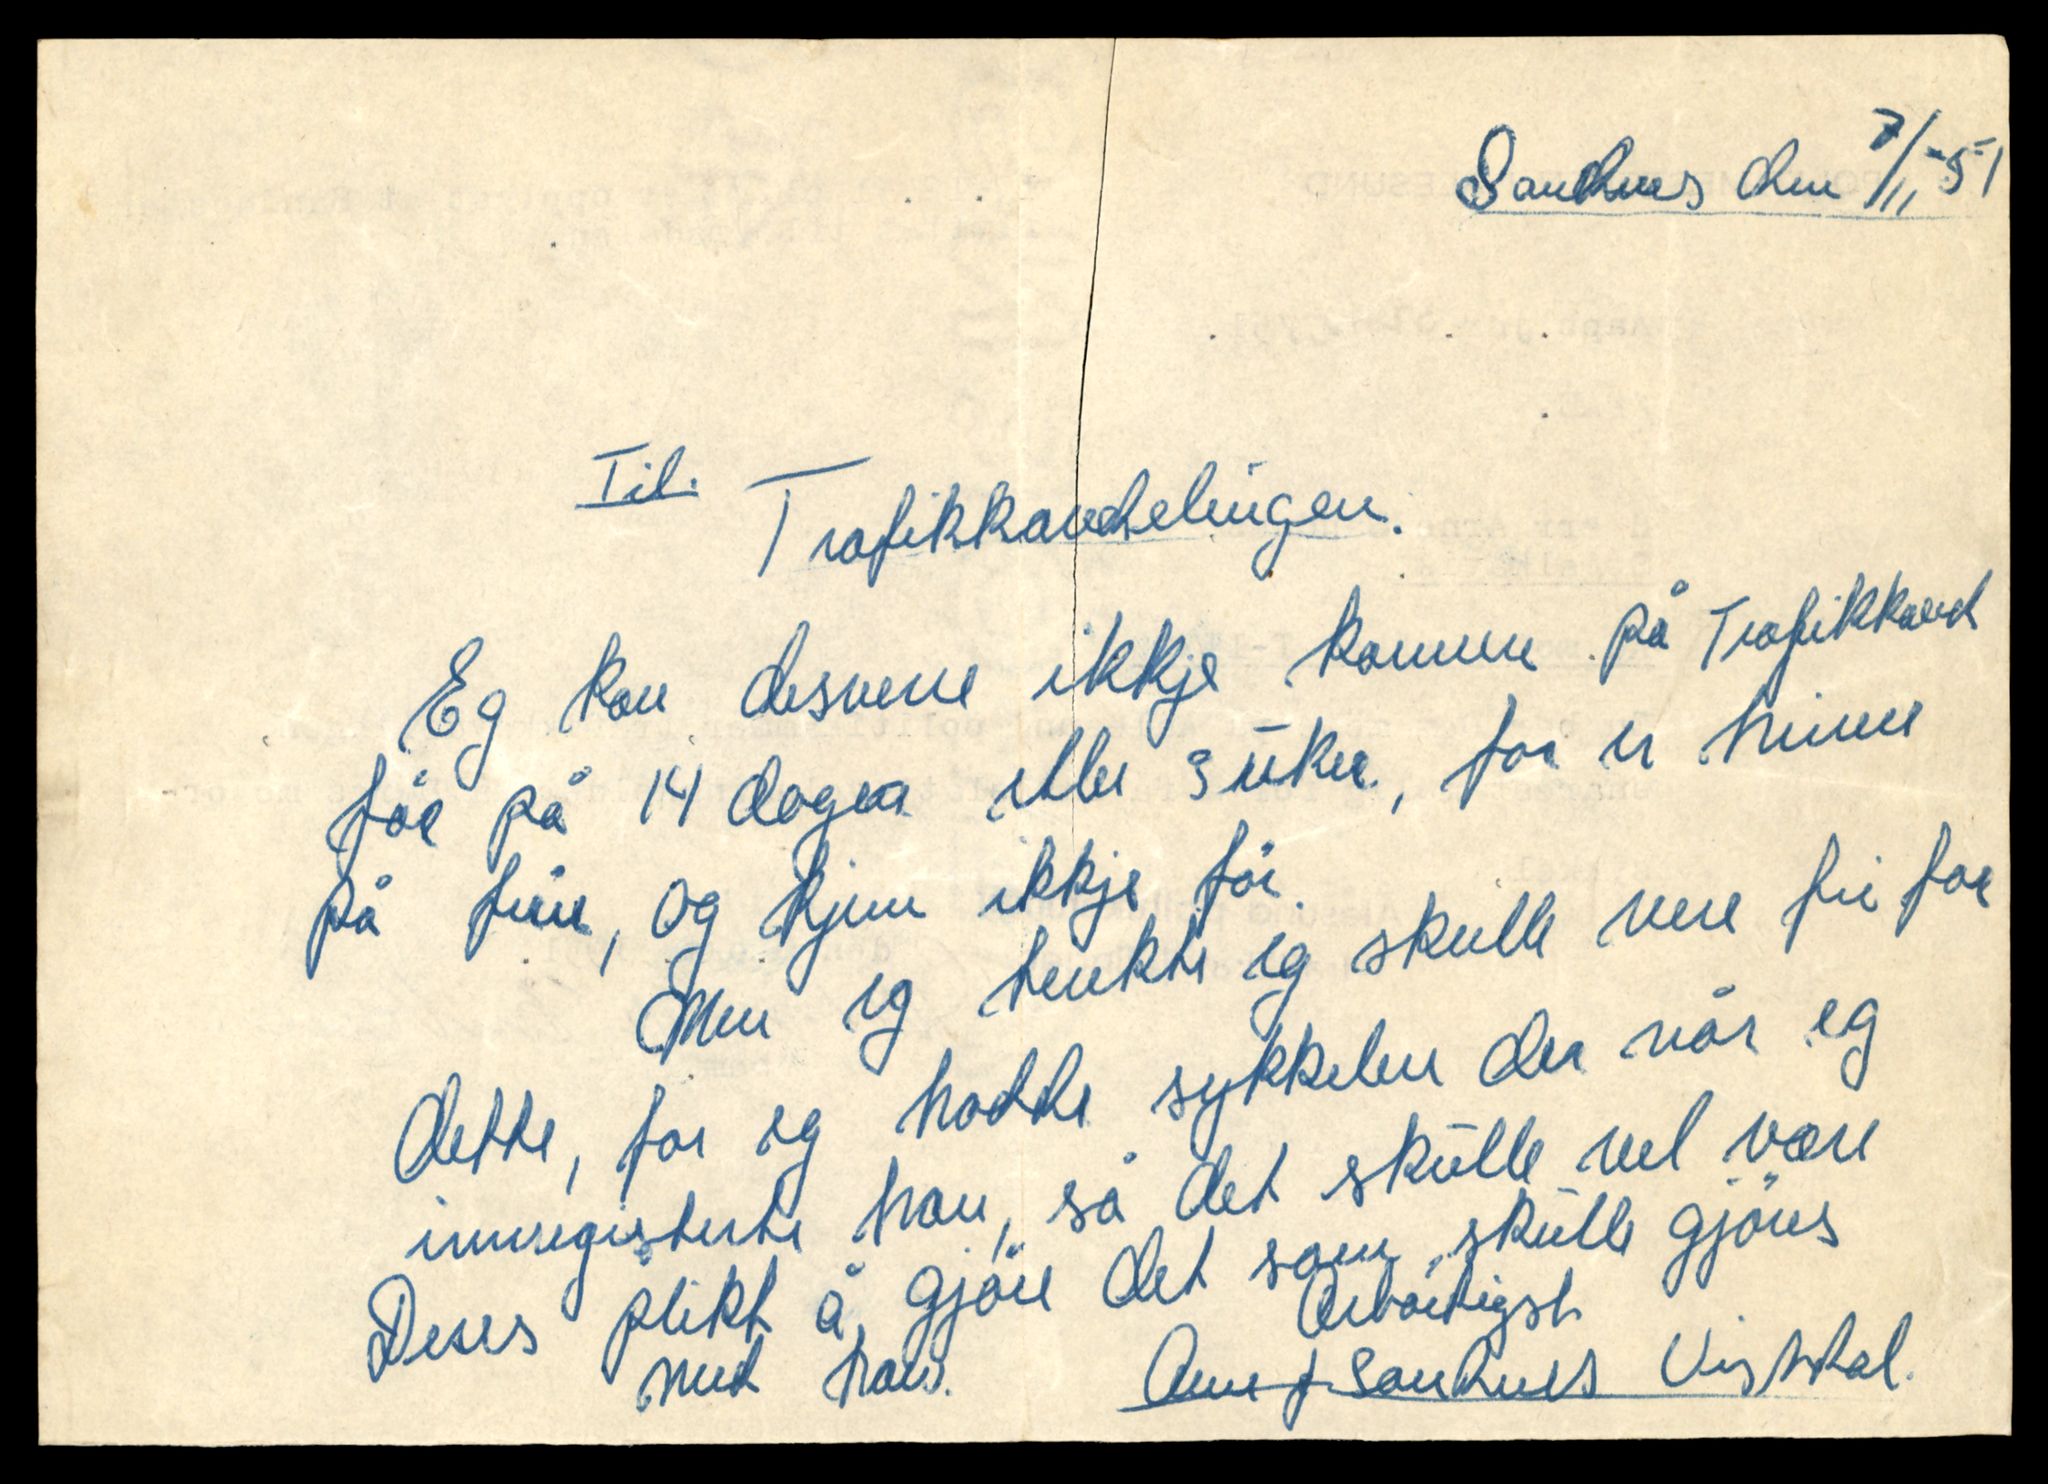 Sandnes den 7/11-51
Til.
Trafikkavdelingen.
Eg kan desvere ikkje komme på Trafikkavd
før på 14 dager eller 3 uker, for er hime
på, og kjem ikkje før.
Men eg tenkte eg skulle vere fri for
dette, for eg hadde sykkelen der når eg
innregisterte han, så det skulle vel være
Deres plikt å gjøre det som skulle gjøres
med han.
Ærbødigst
Arne J Sandnes Vistdal.